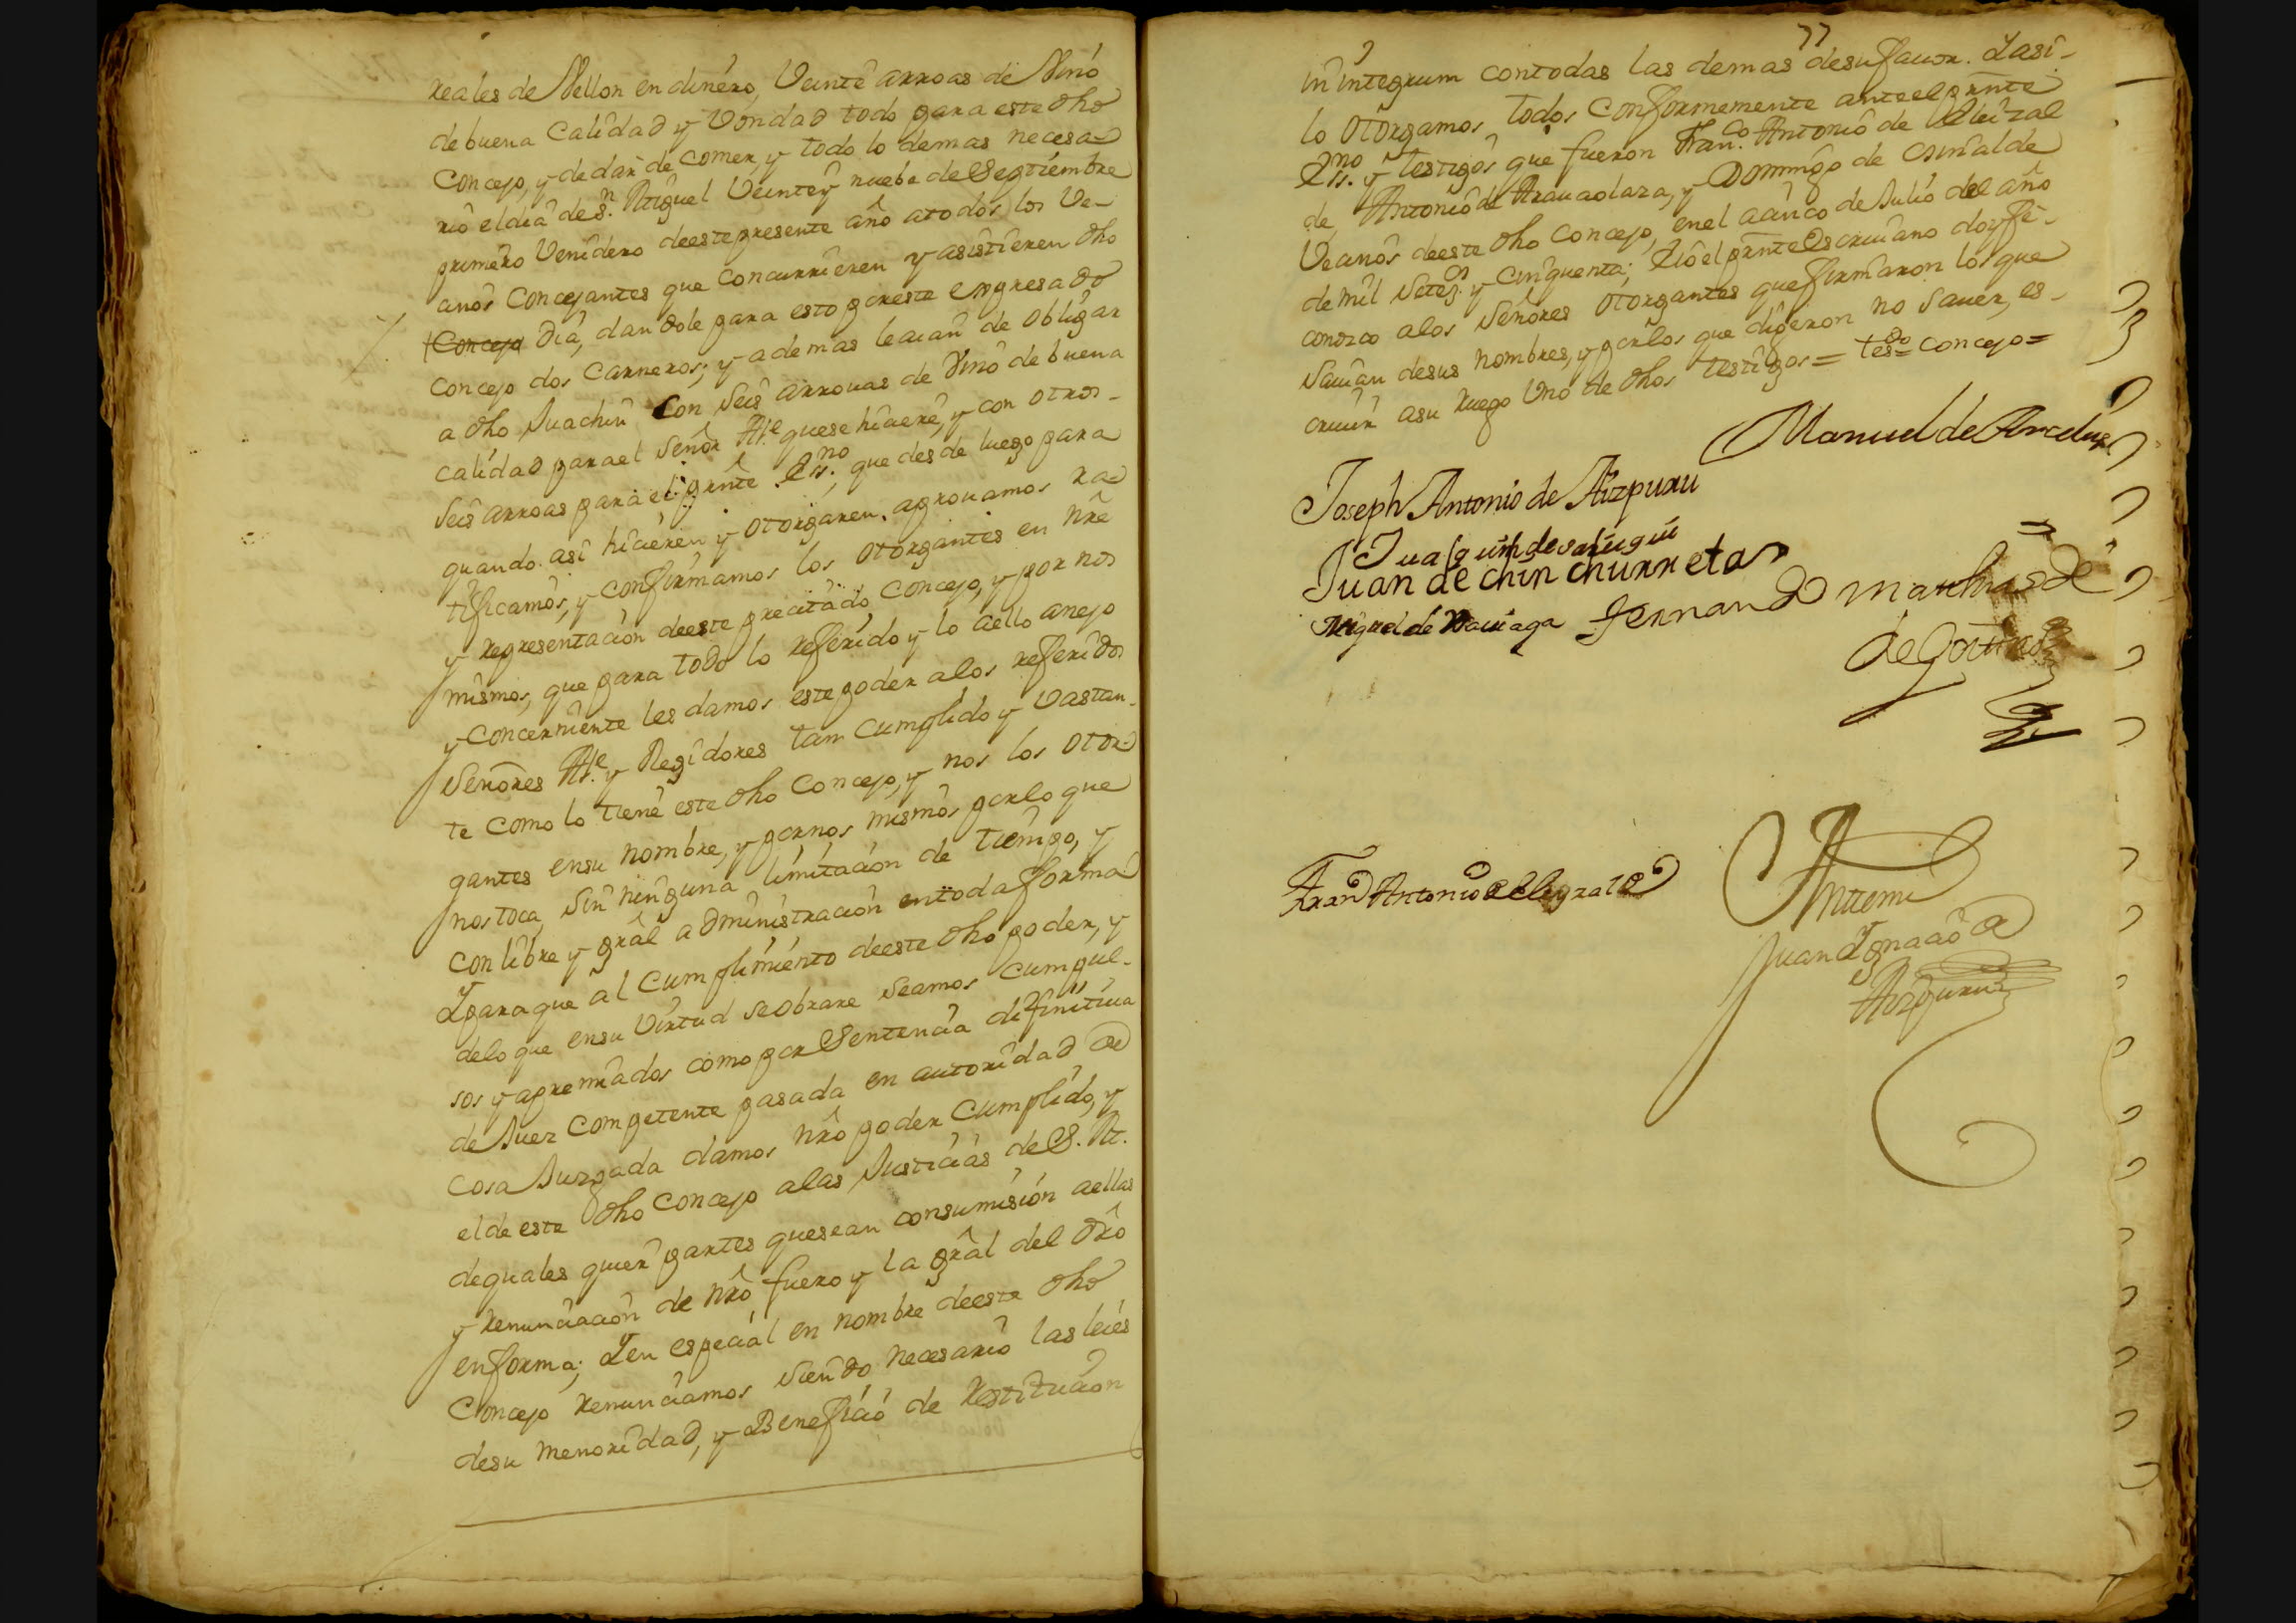 reales de Vellon en dinero, Veinte arroas de Vino
de buena Calidad y Vondad todo para este dho
Concejo, y de dar de comer, y todo lo demas necesa-
rio el dia de Sn. Miguel Veinte y nuebe de Septiembre
primero Venidero deeste presente año atodos los Ve-
cinos Concejantes que concurrieren y asistieren dho
Concejo Dia, dandole para esto por este expresado
Concejo dos Carneros; y ademas le aian de obligar
a dho Juachin con seis arrouas de Vino de buena
Calidad para el Señor Alle. que se hiciere, y con otras
seis arroas para el prnte Essno. que desde luego para
quando asi hicieren y otorgaren, aprouamos ra-
tificamos, y confirmamos los otorgantes en nre
y representacion deeste precitado Concejo, y por nos
mismos, que para todo lo referido y lo aello anejo
y Concerniente les damos este poder alos referidos
Señores Alle. y Regidores tam cumplido y Vastan-
te como lo tiene este dho Concejo, y nos los otor-
gantes ensu nombre, y por nos mismos por lo que
nos toca, sin ninguna limitacion de tiempo, y
con libre y gral administracion entoda forma
Y para que al Cumplimiento deeste dho poder, y
delo que ensu Virtud se obrare seamos Cumpul-
sos y apremiados como por Sentencia difinitiua
de Juez Competente pasada en autoridad de
Cosa Juzgada damos nro poder cumplido, y
el de este dho Concejo alas Justicias de S. M.
de quales quier partes que sean consumision aellas
y renunciacion de nro fuero y la gral del dro
enforma; Y en especial en nombre deeste dho
Concejo renunciamos siendo necesario las leies
desu menoridad, y Beneficio de restitucion
77
in integrum contodas las demas desu fauor. Y asi
lo otorgamos todos conformemente ante el prnte
Essno. y testigos que fueron Franco. Antonio de Eleizal
de, Antonio de Arauaolaza, y Domingo de Osinalde
Vecinos deeste dho Concejo, en el a cinco de Julio del año
de mil setezs. y Cinquenta; Yo el prnte Escriuano doy fe
conozco alos Señores otorgantes que firmaron los que
sauian desus nombres, y por los que digeron no sauer, es-
criuir asu ruego Uno de dhos testigos = tesdo = concejo =
Manuel de Arcelus
Joseph Antonio de Aizpuru
Juan de chinchurreta
Miguel de Fernando Mathias de
de
Fran Antonio
Antemi
Juan Ygnacio de
Aizpuru